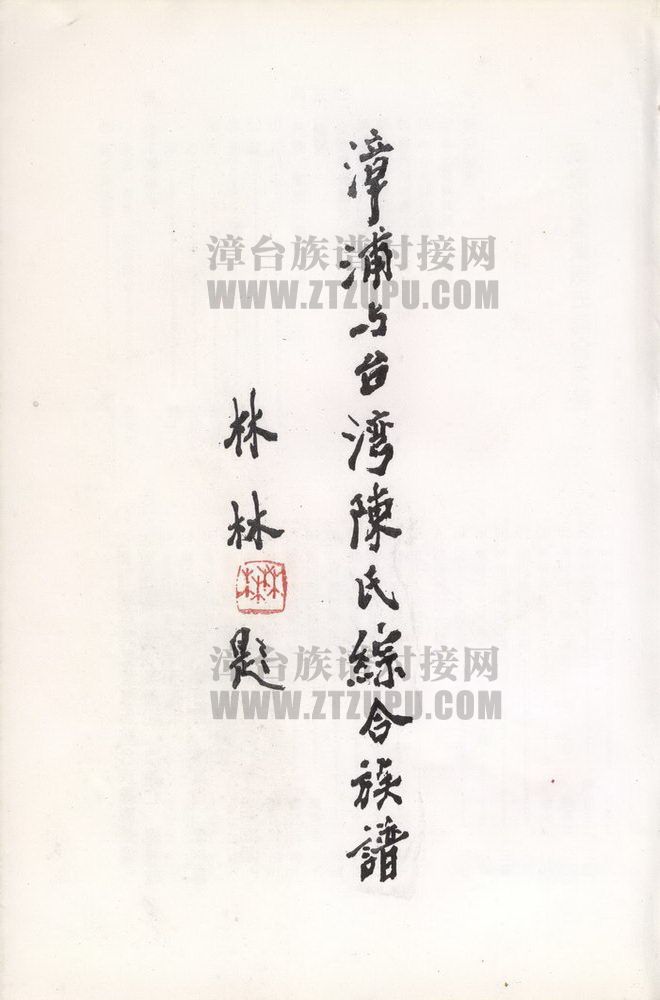 漳浦与台湾陳氏綜合族譜
林林
題
漳台族谱对接网
WWW.ZTZUPU.COM
漳台族谱对接网
WWW.ZTZUPU.COM